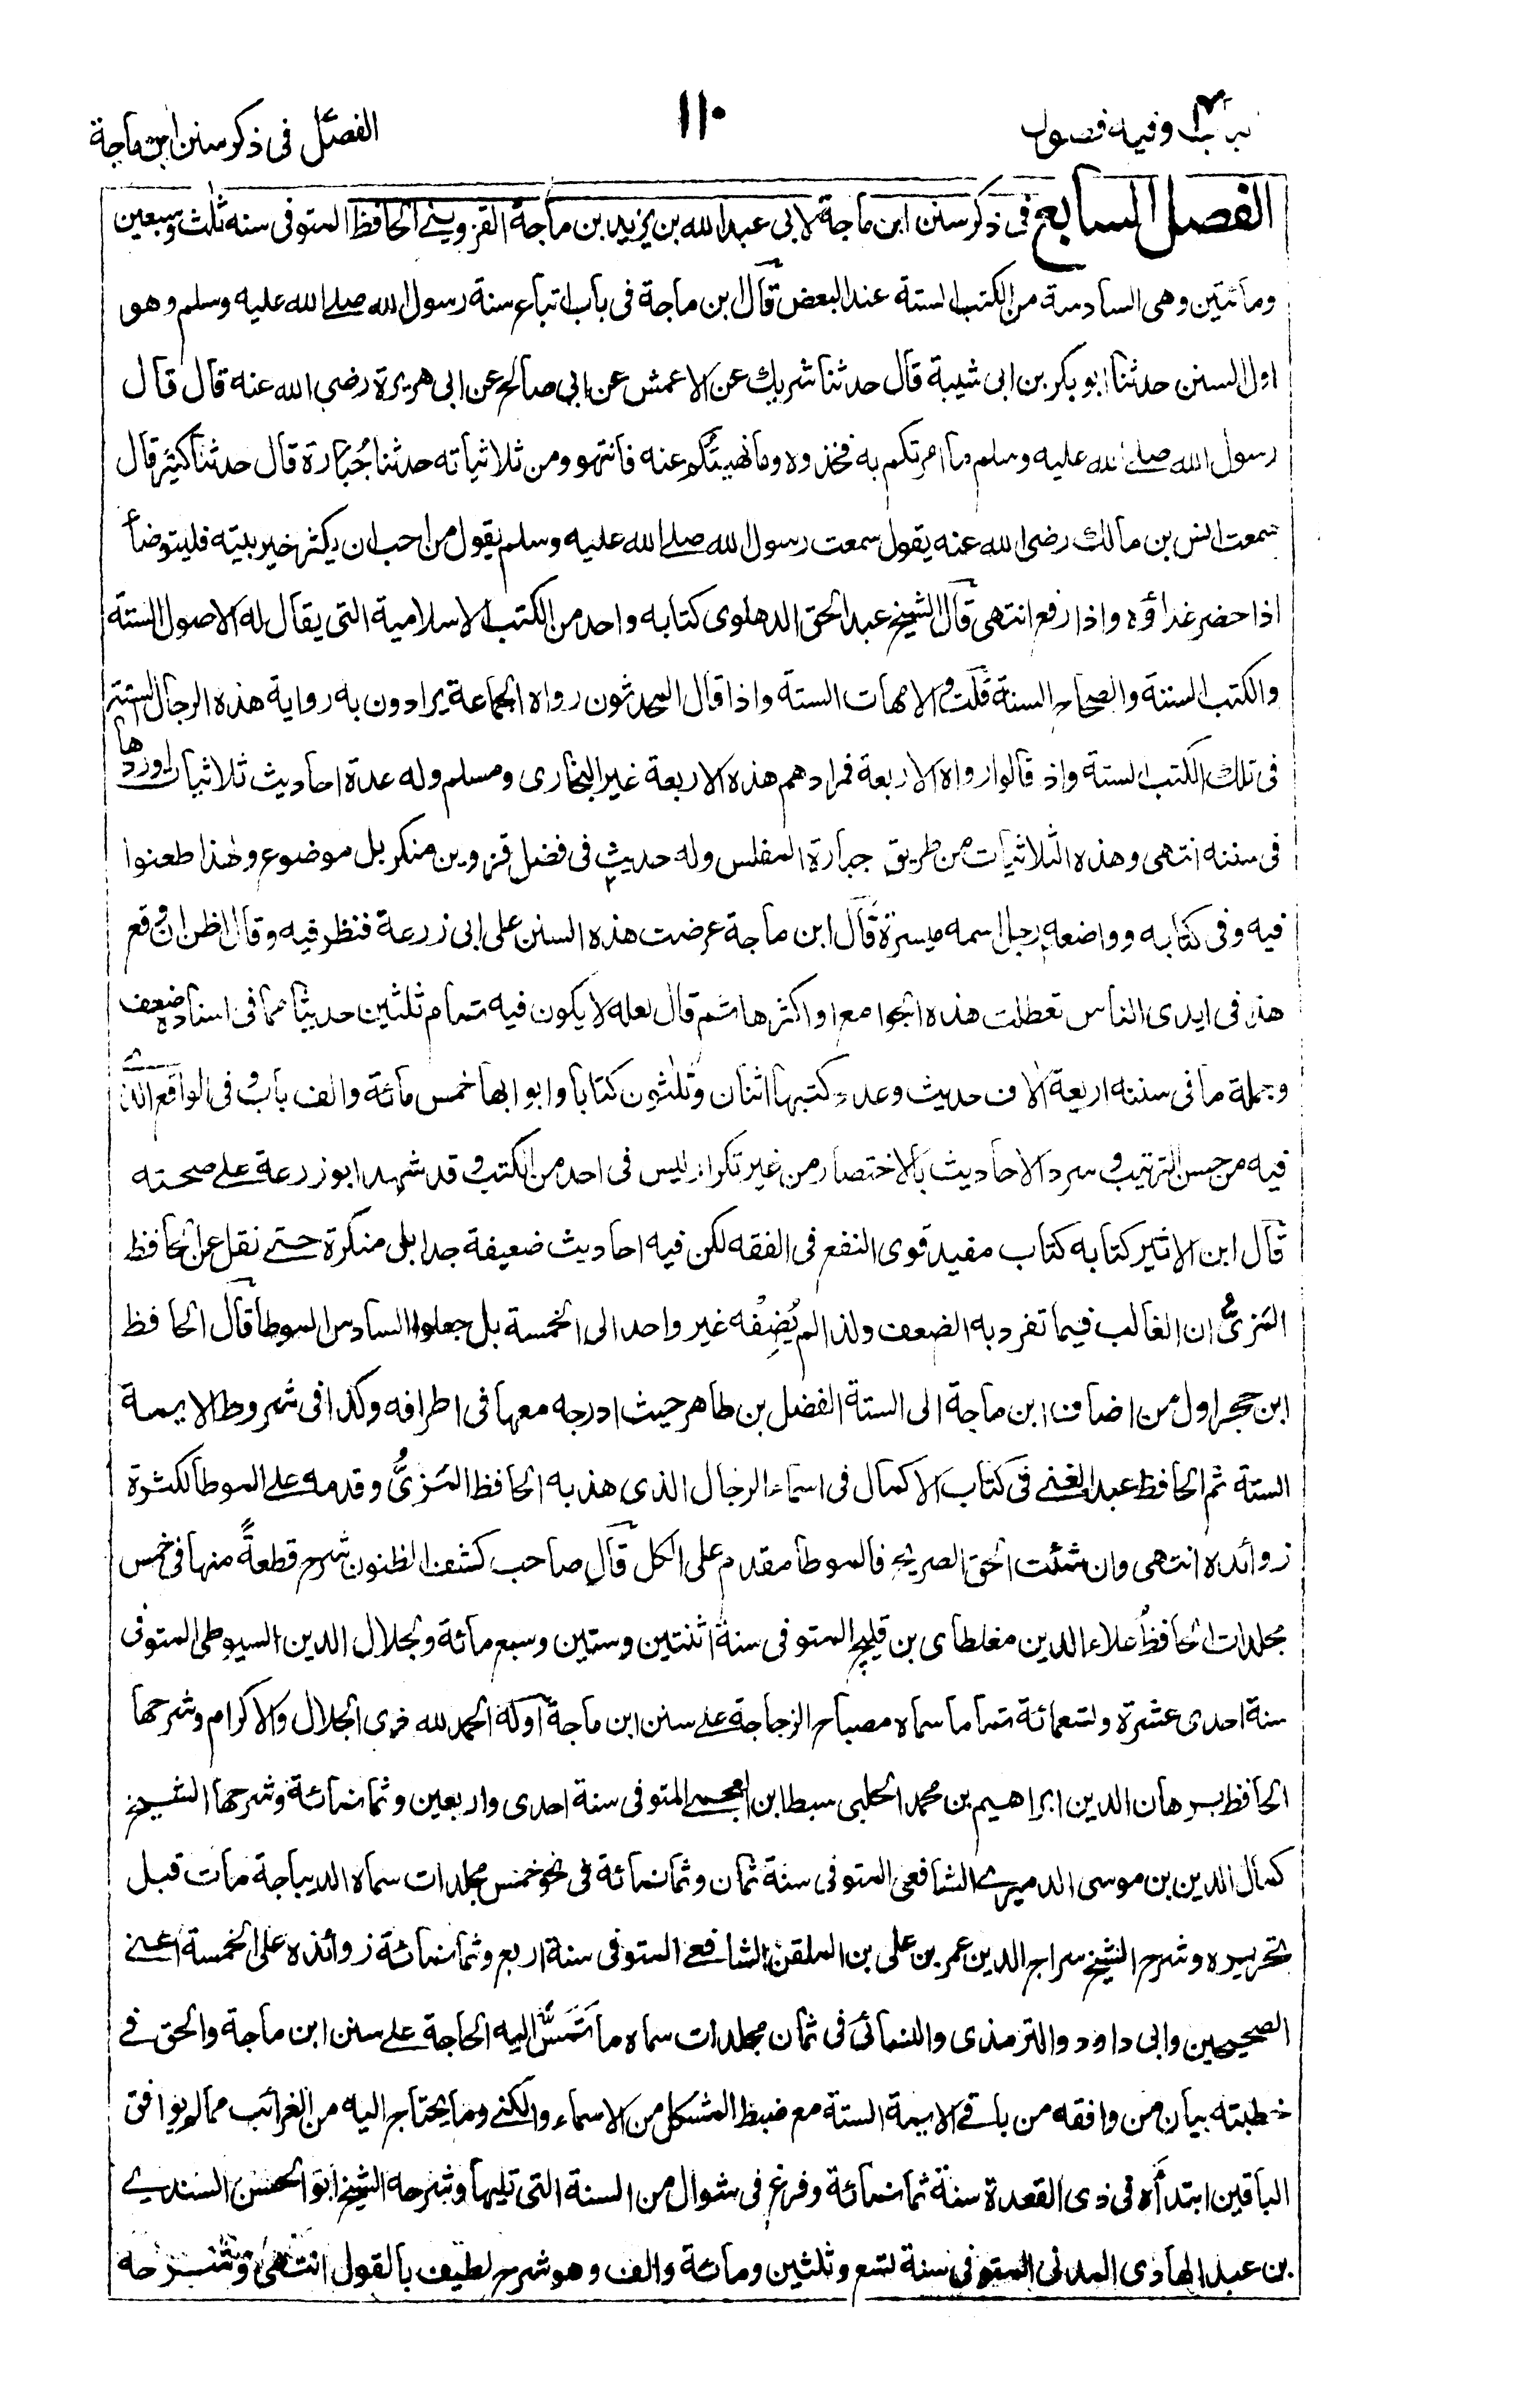 باب۴ وفيه فصول
۱۱۰
الفصل۷ فى ذكر سنن ابن ماجة
الفصل السابع فى ذكر سنن ابن ماجة لابى عبد الله بن يزيد بن ماجة القزوينى الحافظ المتوفى سنه ثلث وسبعين
ومائتين وهى السادسة من الكتب الستة عند البعض قال ابن ماجة فى باب اتباع سنة رسول الله صلے الله عليه وسلم وهو
اول السنن حدثنا ابو بكر بن ابى شيبة قال حدثنا شريك عن الاعمش عن ابى صالح عن ابى هريرة رضى الله عنه قال قال
رسول الله صلے الله عليه وسلم ما امرتكم به فخذوه وما نهيتكم عنه فانتهو ومن ثلاثياته حدثنا جُبَارة قال حدثنا كثير قال
سمعت انس بن مالك رضى الله عنه يقول سمعت رسول الله صلے الله عليه وسلم يقول من احب ان يكثر خير بيته فليتوضأ
اذا حضر غداؤه واذا رفع انتهى قال الشيخ عبد الحق الدهلوى كتابه واحد من الكتب الاسلامية التى يقال له الاصول الستة
والكتب الستة والصحاح الستة قلت والامهات الستة واذا قال المحدثون رواه الجماعة يرادون به رواية هذه الرجال الستة
فى تلك الكتب الستة واذ قالوا رواه الاربعة فمرادهم هذه الاربعة غير البخارى ومسلم وله عدة احاديث ثلاثيات اوردها
فى سننه انتهى وهذه الثلاثيات من طريق جبارة المفلس وله حديث فى فضل قزوين منكر بل موضوع ولهذا طعنوا
فيه وفى كتابه وواضعه رجل اسمه ميسرة قال ابن ماجة عرضت هذه السنن على ابى زرعة فنظر فيه وقال اظن ان وقع
هذا فى ايدى الناس تعطلت هذه الجوامع او اكثرها ثم قال لعله لا يكون فيه تمام ثلثين حديثا مما فى اسناده ضعف
وجملة ما فى سننه اربعة الاف حديث وعدد كتبها اثنان وثلثون كتابا وابوابها خمس مائة والف باب وفى الواقع الذے
فيه من حسن الترتيب وسرد الاحاديث بالاختصار من غير تكرار ليس فى احد من الكتب وقد شهد ابو زرعة على صحته
قال ابن الاثير كتابه كتاب مفيد قوى النفع فى الفقه لكن فيه احاديث ضعيفة جدا بل منكرة حتے نقل عن الحافظ
المزىُّ ان الغالب فيما تفرد به الضعف ولذا لم يُضِفْه غير واحد الى الخمسة بل جعلوا السادس الموطأ قال الحافظ
ابن حجر اول من اضاف ابن ماجة الى الستة الفضل بن طاهر حيث ادرجه معها فى اطرافه وكذا فى شروط الايمة
الستة ثم الحافظ عبد الغنے فى كتاب الاكمال فى اسماء الرجال الذى هذبه الحافظ المَزىُّ وقدمه على الموطأ لكثرة
زوائده انتهى وان شئت الحق الصريح فالموطأ مقدم على الكل قال صاحب كشف الظنون شرح قطعةً منها فى خمس
مجلدات الحافظُ علاء الدين مغلطاى بن قليج المتوفى سنة اثنتين وستين وسبع مائة وجلال الدين السيوطى المتوفى
سنة احدى عشرة وتسعمائة تماما سماه مصباح الزجاجة على سنن ابن ماجة اوله الحمد لله ذى الجلال والاكرام وشرحها
الحافظ برهان الدين ابراهيم بن محمد الحلبى سبط ابن العجمے المتوفى سنة احدى واربعين وثمانمائة وشرحها الشيخ
كمال الدين بن موسى الدميرے الشافعى المتوفى سنة ثمان وثمانمائة فى نحو خمس مجلدات سماه الديباجة مات قبل
تحريره وشرح الشيخ سراج الدين عمر بن على بن الملقن الشافعے المتوفى سنة اربع وثمانمائة زوائده على الخمسة اعنے
الصحيحين وابى داود والترمذى والنسائى فى ثمان مجلدات سماه ما تَمَسُّ اليه الحاجة على سنن ابن ماجة والحق فے
خطبته بيان من وافقه من باقے الايمة الستة مع ضبط المشكل من الاسماء والكنے وما يحتاج اليه من الغرائب مما لم يوافق
الباقين ابتدأه فى ذى القعدة سنة ثمانمائة وفرغ فى شوال من السنة التى تليها وشرحه الشيخ ابو الحسن السندے
بن عبد الهادى المدنى المتوفى سنة تسع وثلثين ومائة والف وهو شرح لطيف بالقول انتهى وشرحه